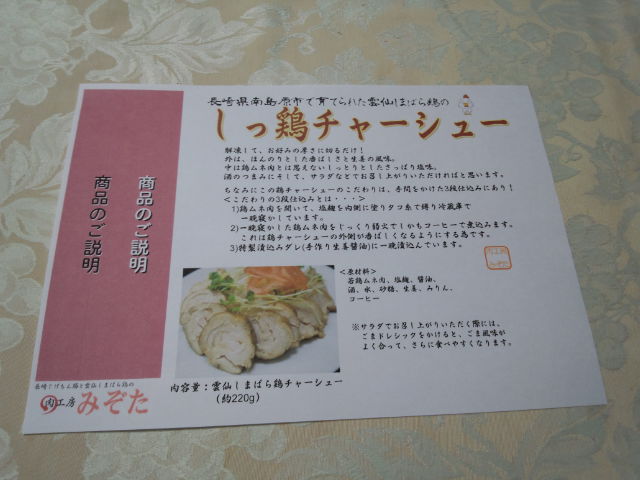 商品のご説明
商品のご説明
長崎県南島原市で育てられた雲仙しまばら鶏の
しっ鶏チャーシュー
解凍して、お好みの厚さに切るだけ!
外は、ほんのりとした香ばしさと生姜の風味。
中は鶏ムネ肉とは思えないしっとりとしたさっぱり塩味。
酒のつまみにそして、サラダなどでお召し上がりいただければと思います。
ちなみにこの鶏チャーシューのこだわりは、手間をかけた3段仕込みにあり!
<こだわりの3段仕込みとは・・・>
1)鶏ムネ肉を開いて、塩麹を内側に塗りタコ糸で縛り冷蔵庫で
一晩寝かしています。
2)一晩寝かした鶏ムネ肉をじっくり弱火でしかもコーヒーで煮込みます。
これは鶏チャーシューの外側が香ばしくなるようにする為です。
3)特製漬込みダレ(手作り生姜醤油)に一晩漬込んでいます。
<原材料>
若鶏ムネ肉、塩麹、醤油、
酒、水、砂糖、生姜、みりん、
コーヒー
※サラダでお召し上がりいただく際には、
ごまドレシックをかけると、ごま風味が
よく合って、さらに食べやすくなります。
内容量:雲仙しまばら鶏チャーシュー
(約220g)
肉工房 みぞた